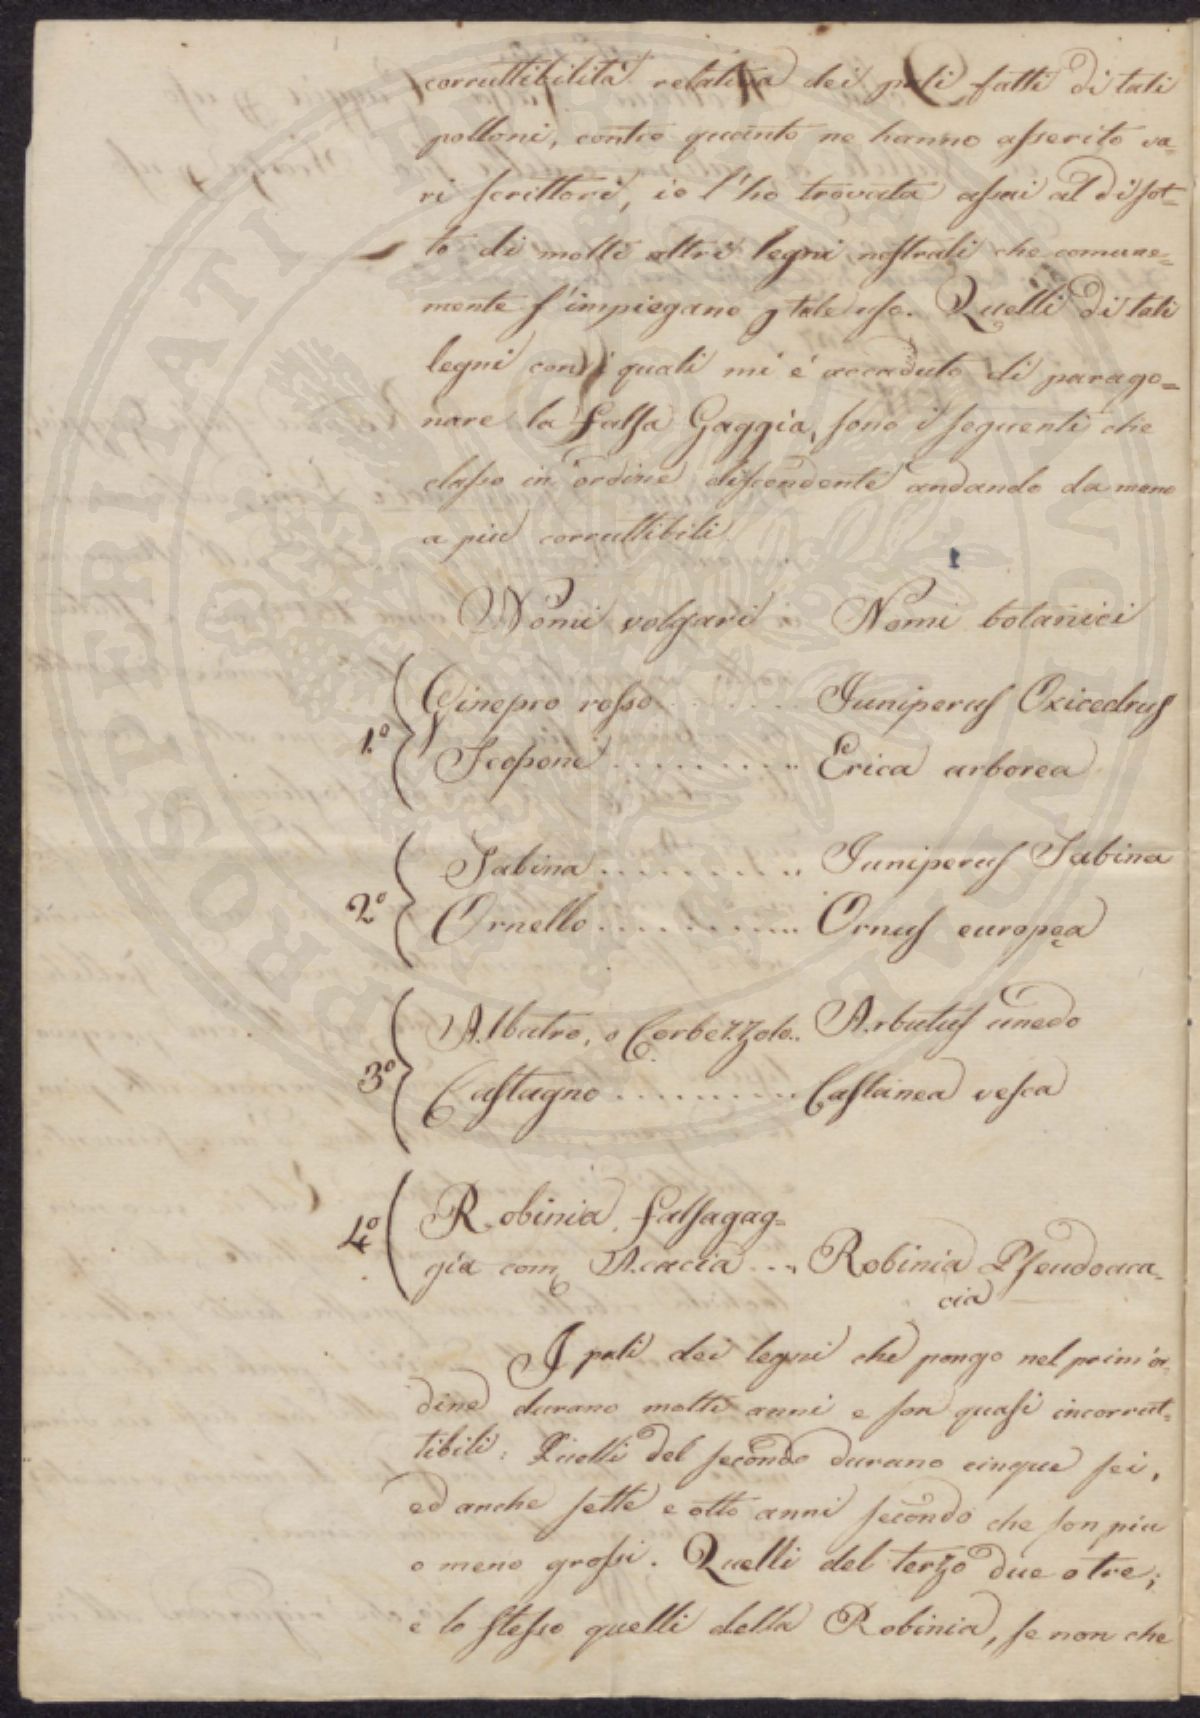 corruttibilità relativa dei pali fatti di tali
polloni, contro quanto ne hanno asserito va=
ri scrittori, io l'ho trovata assai al disot=
to di molti altri legni nostrali che comune=
mente s'impiegano p tale uso. Quelli di tali
legni con i quali mi è accaduto di parago=
nare la falsa Gaggia, sono i seguenti che
classo in ordine discendente andando da meno
a più corruttibili
Nomi volgari Nomi botanici
1.° Ginepro rosso ....... Juniperus Oxicedrus
Scoponi .......... Erica arborea
2° Sabina .......... Juniperus Sabina
Ornello ........... Ornus europęa
3° Albatro, o Corbezzolo.. Arbutus unedo
Castagno .......... Castanea vesca
4° Robinia falsagag=
gia com Acacia .... Robinia Pseudoaca=
cia
I pali dei legni che pongo nel prim'or=
dine durano molti anni e son quasi incorrut=
tibili: Quelli del secondo durano cinque sei,
ed anche sette e otto anni secondo che son più
o meno grossi. Quelli del terzo due o tre;
e lo stesso quelli della Robinia, se non che
PROSPERITATI PUBLICAE